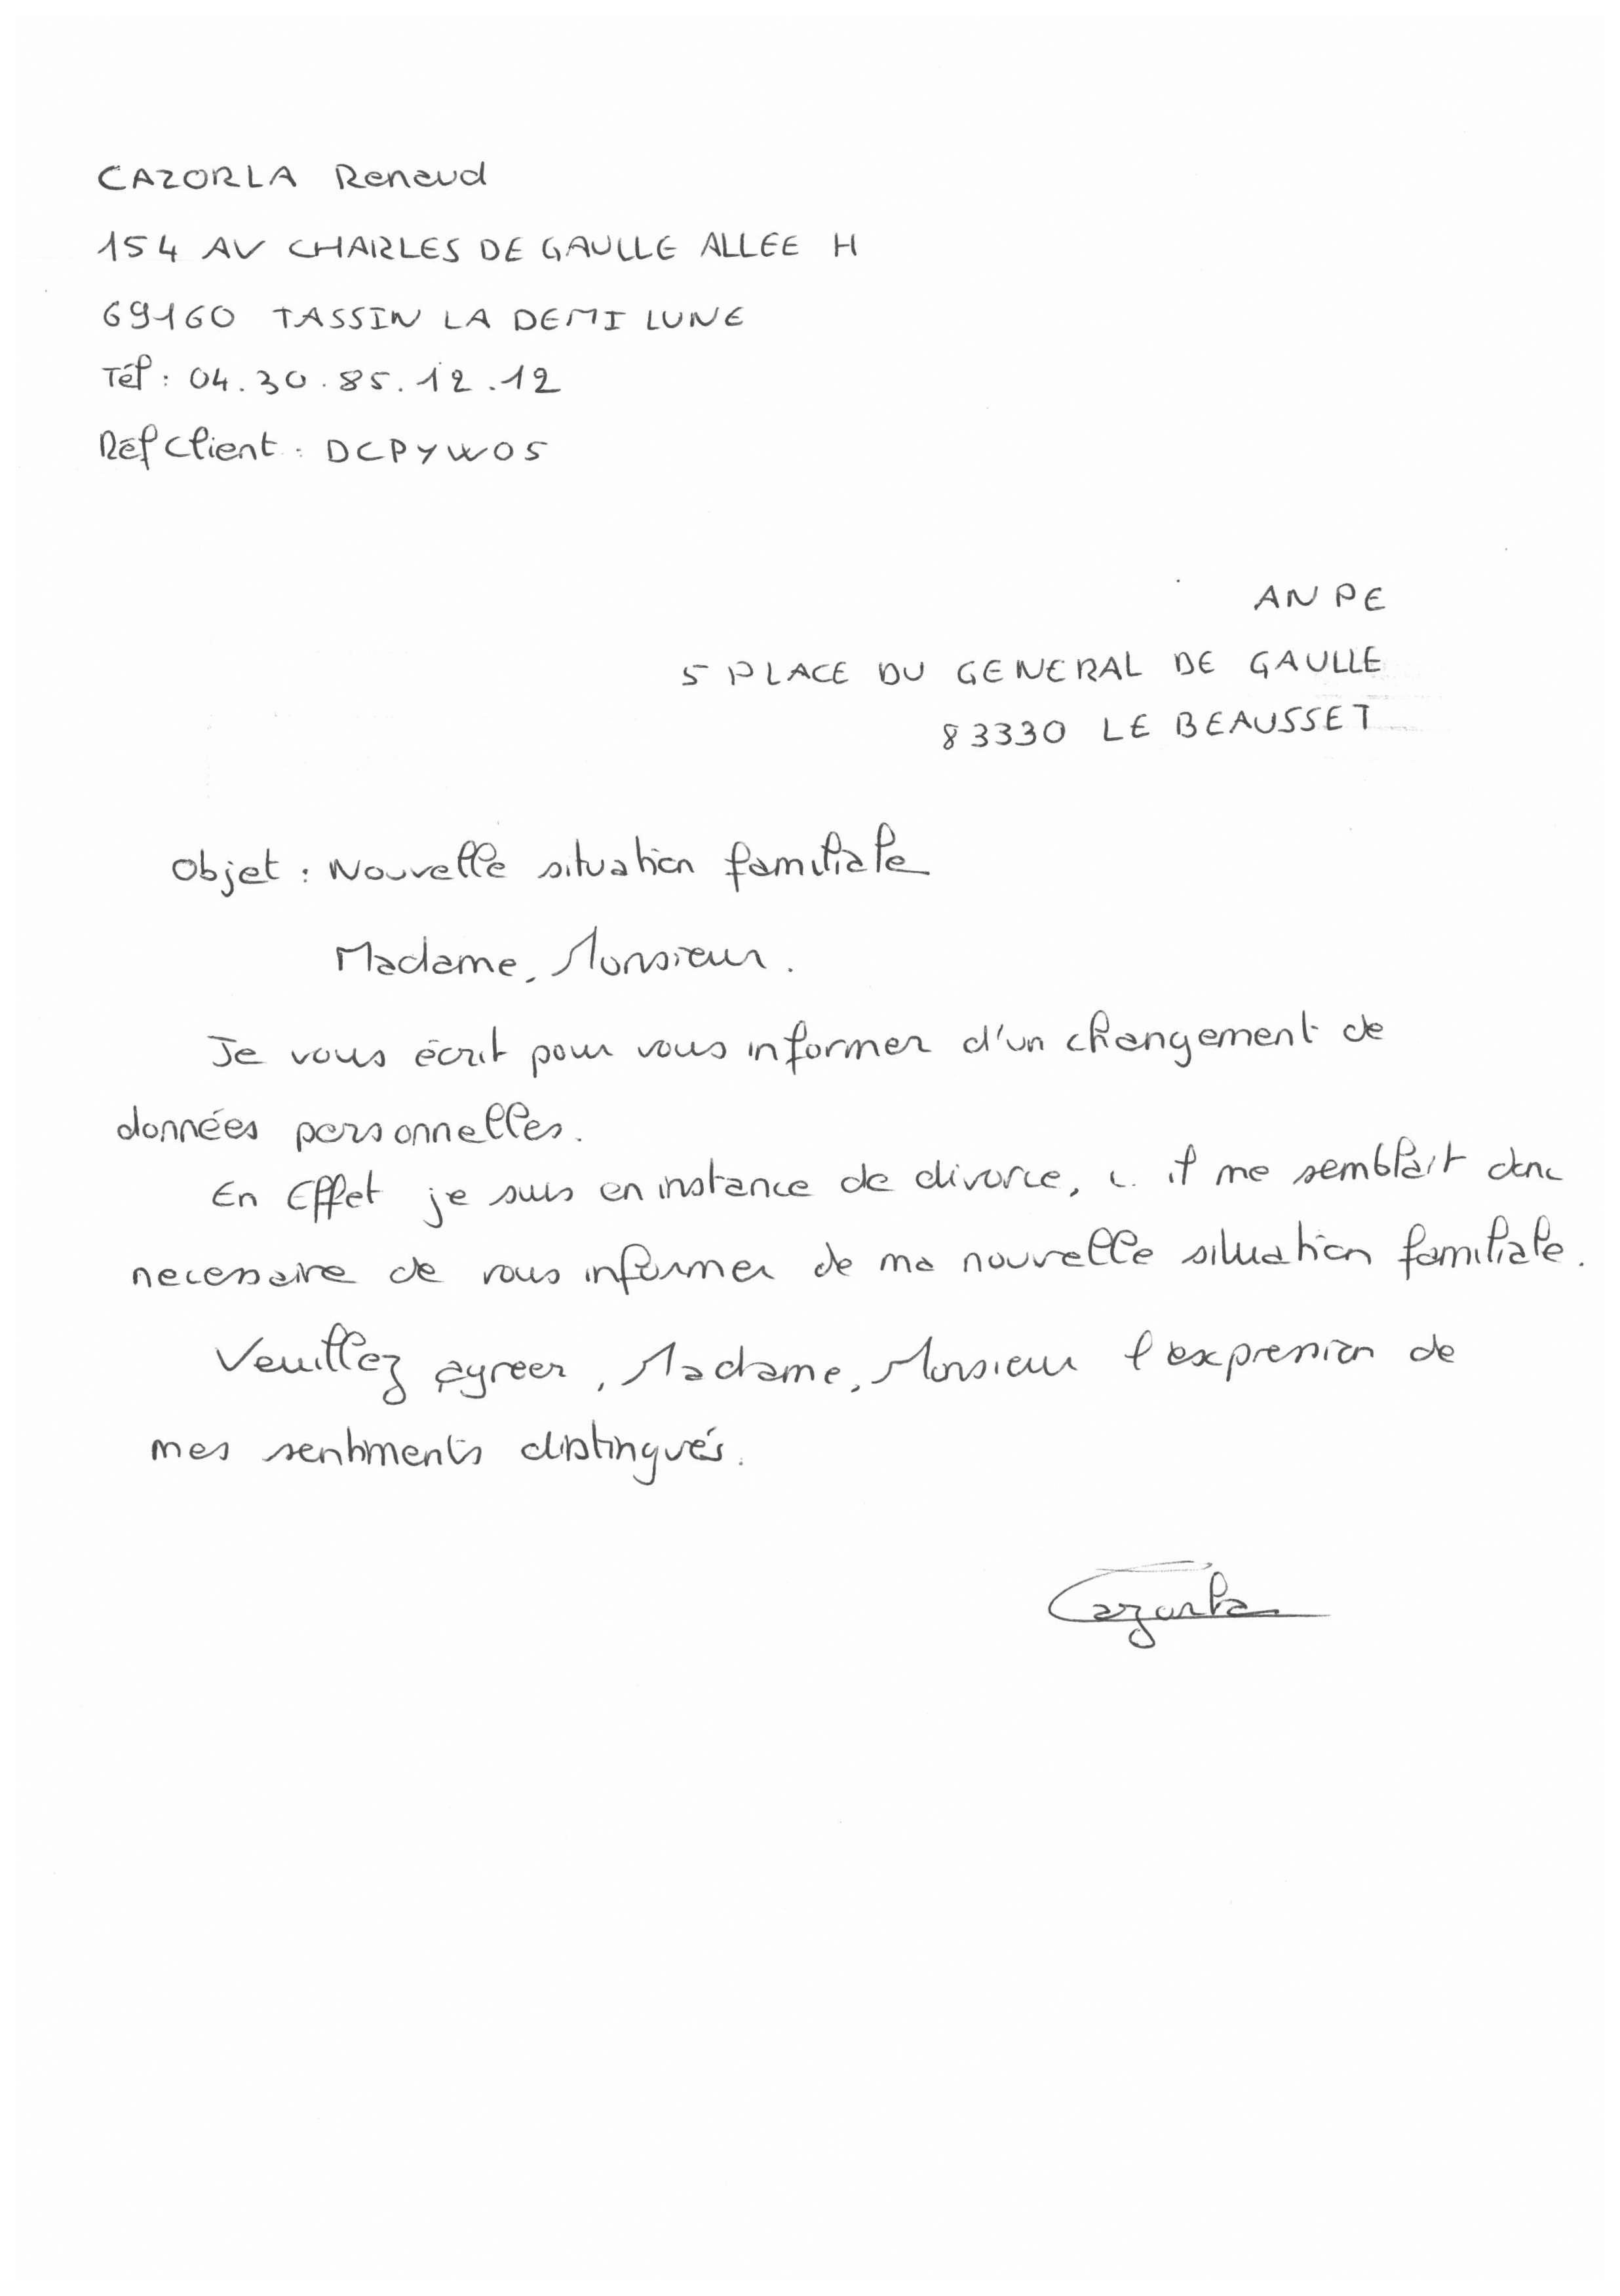 CAZORLA Renaud
154 AV CHARLES DE GAULLE ALLEE H
69160 TASSIN LA DEMI LUNE
Tél : 04.30.85.12.12
Réf Client : DCPYW05
ANPE
5 PLACE DU GENERAL DE GAULLE
83330 LE BEAUSSET
Objet : Nouvelle situation familiale
Madame, Monsieur.
Je vous écrit pour vous informer d'un changement de
données personnelles.
En Effet je suis en instance de divorce, il me semblait donc
necessaire de vous informer de ma nouvelle situation familiale.
Veuillez agreer, Madame, Monsieur l'expression de
mes sentiments distingués.
Cazorla